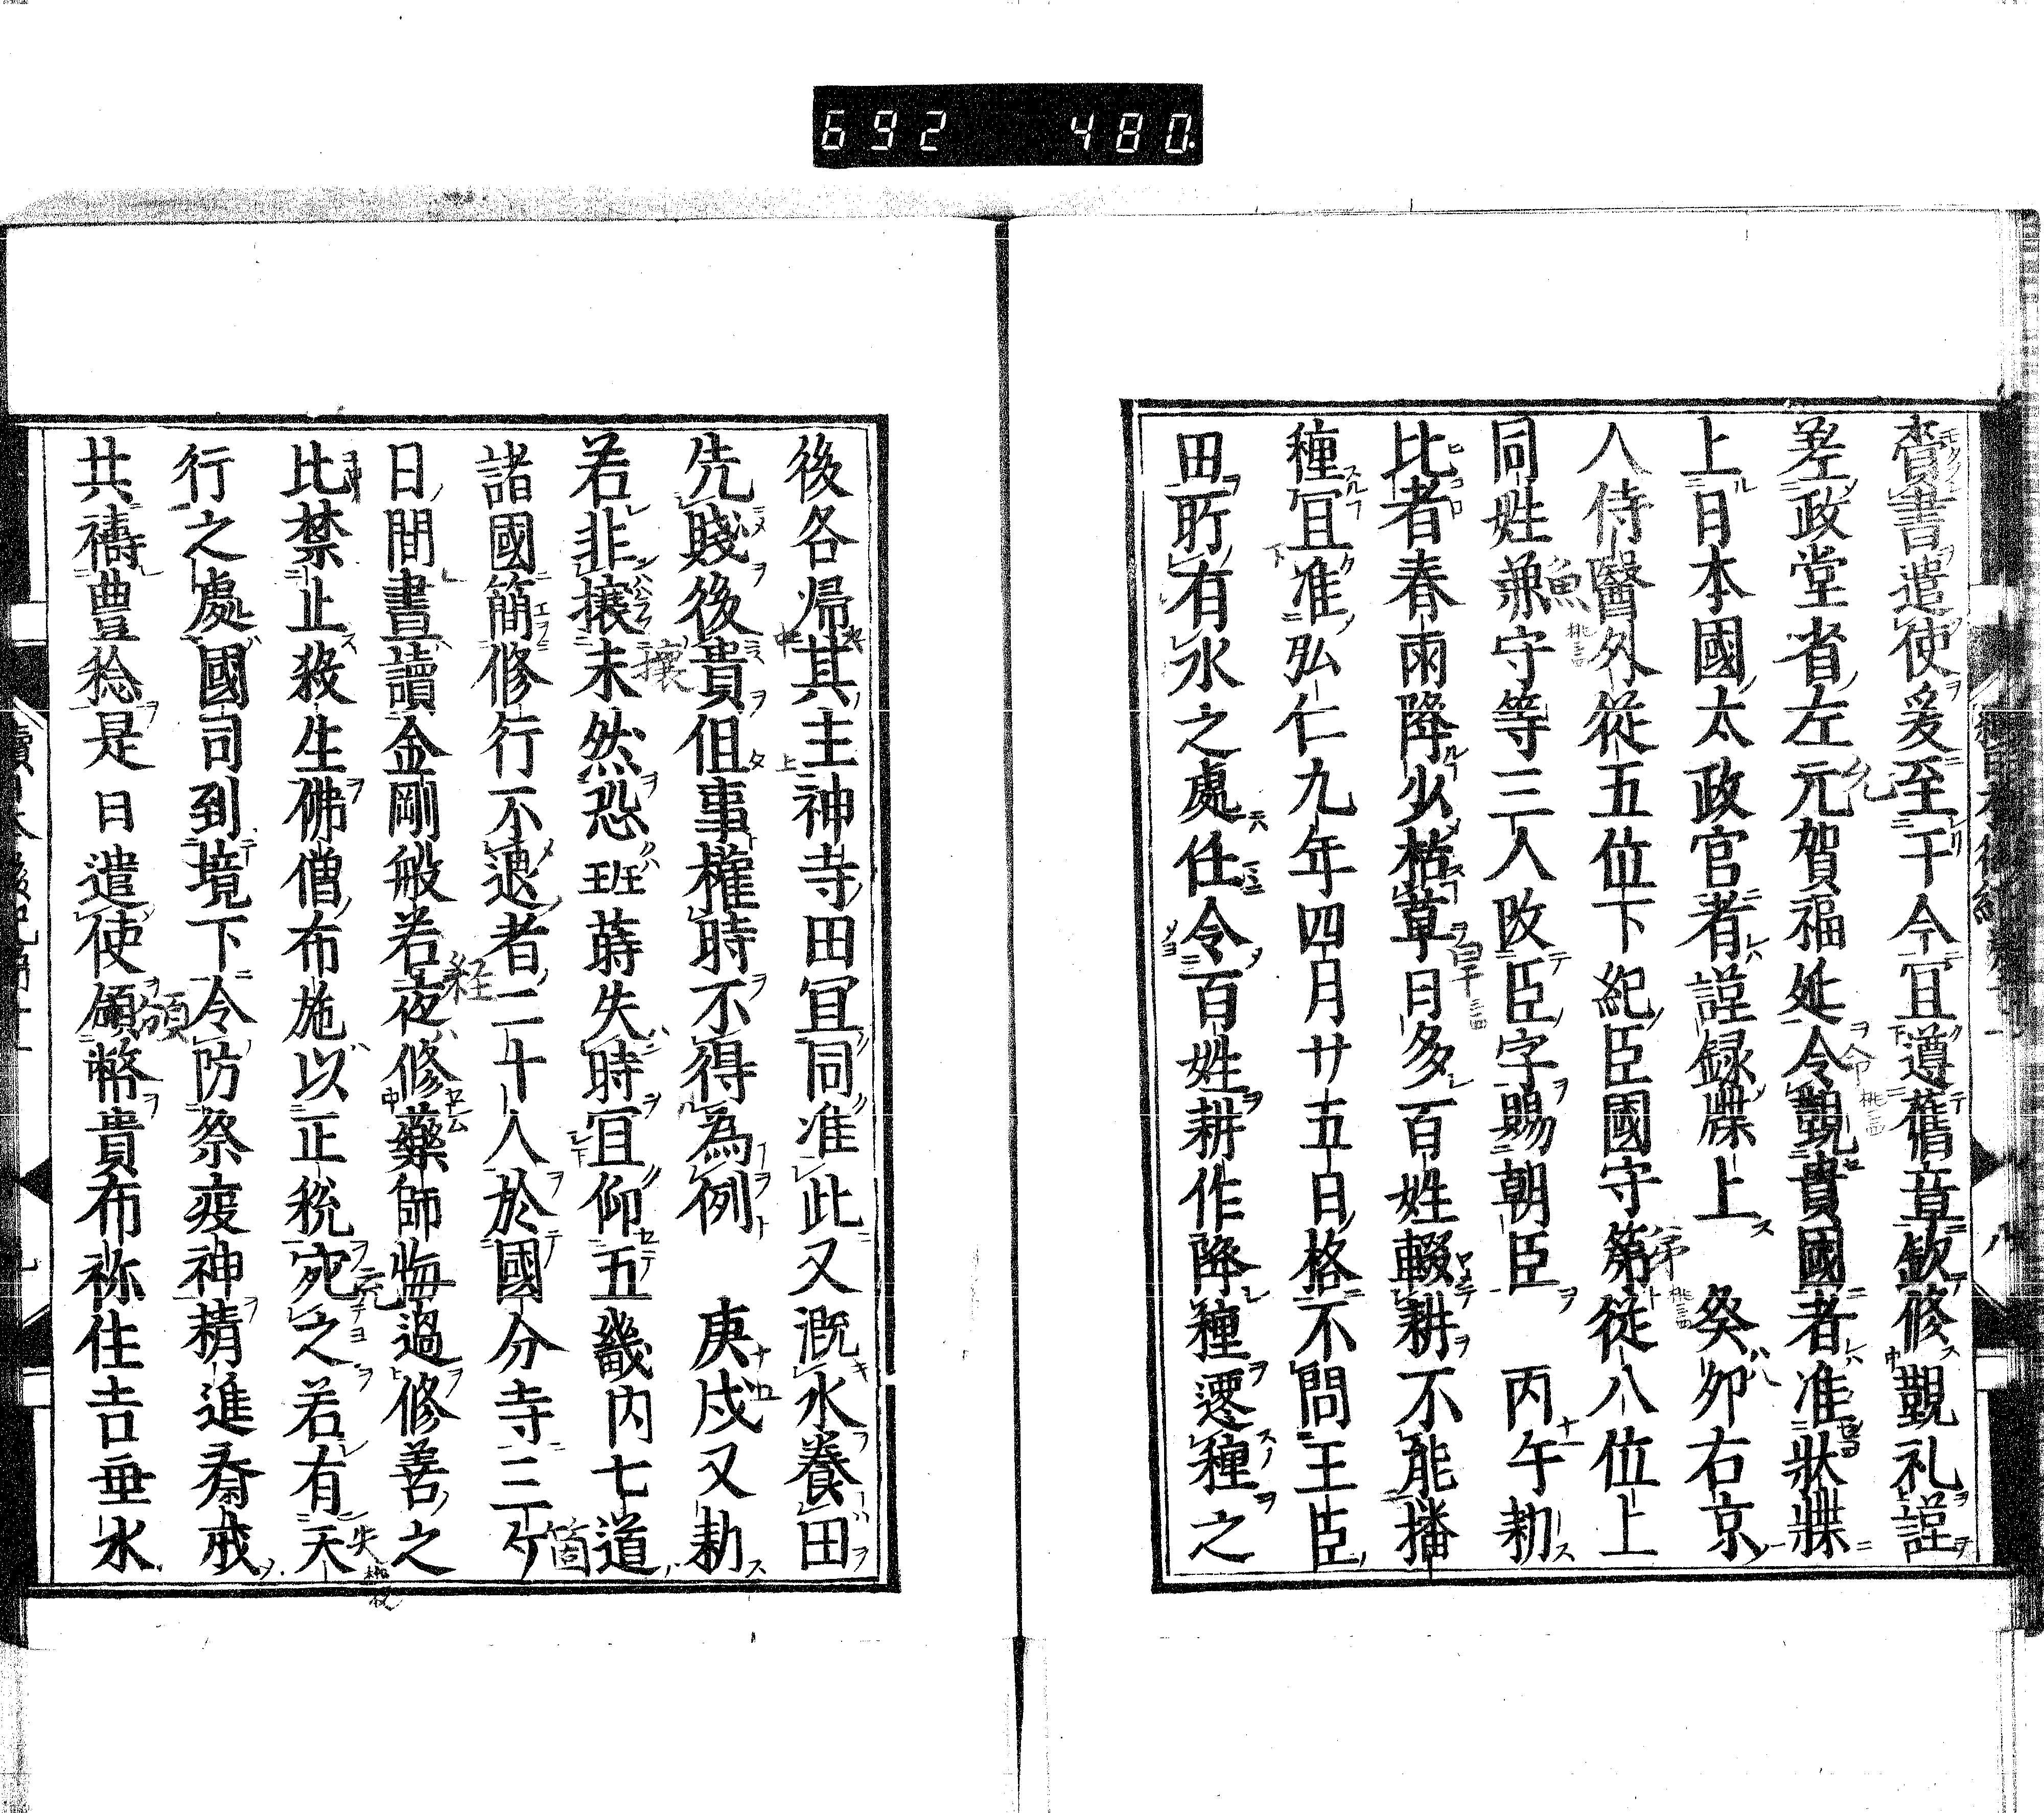 692 480
賷書遣使爰至于今冝遵舊章欽修覲礼謹
差政堂省左元賀福延令覲貴國者准狀牒
上日本國太政官者謹録牒上 癸夘右京
人侍醫外從五位下紀臣國守第從八位上
同姓兼守等三人改臣字賜朝臣 丙午勑
比者春雨降少枯草日多百姓輟耕不能播
種冝准弘仁九年四月廿五日格不問王臣
田所有水之處任令百姓耕作降種遝種之
後各帰其主神寺田冝同准此又漑水養田
先賤後貴但事權時不得為例 庚戌又勑
若非攘未然恐班蒔失時冝仰五畿内七道
諸國簡修行不退者二十人於國分寺三ケ
日間晝讀金剛般若夜修藥師悔過修善之
比禁止殺生佛僧布施以正稅宛之若有天
行之處國司到境下令防祭疫神精進斎戒
共禱豊稔是日遣使頒幣貴布祢住吉垂水